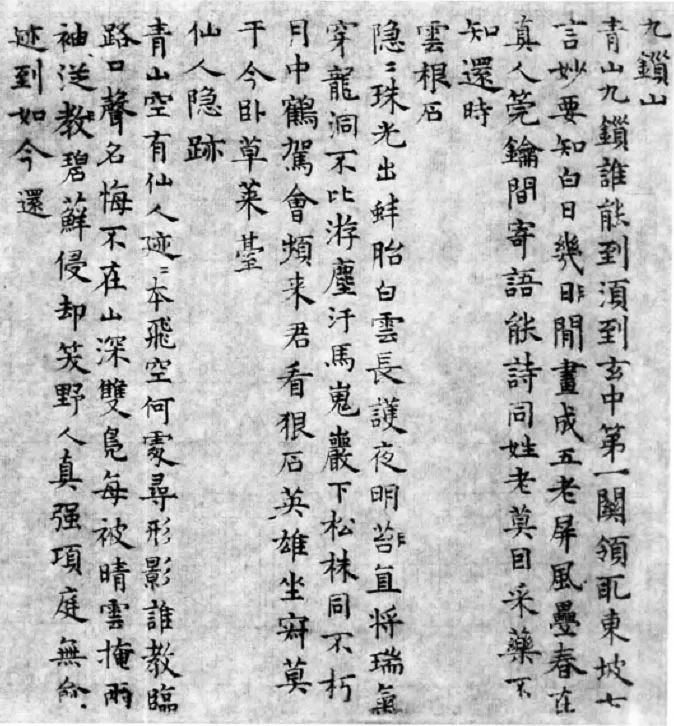 九鎖山
青山九鎖誰能到須到玄中第一關領取東坡七
言妙要知白日幾日閒畫成五老屏風疊春在
真人筦鑰間寄語能詩同姓老莫因采藥不
知還時
雲根石
隐〻珠光出蚌胎白雲長護夜明苔直将瑞氣
穿龍洞不比游塵汙馬嵬巖下松株同不朽
月中鶴駕會頻来君看狠石英雄坐寂莫
于今卧草莱臺
仙人隐跡
青山空有仙人迹〻本飛空何處尋形影誰教臨
路口聲名悔不在山深雙鳧每被晴雲掩兩
袖從教碧蘚侵却笑野人真强項庭無
迹到如今還